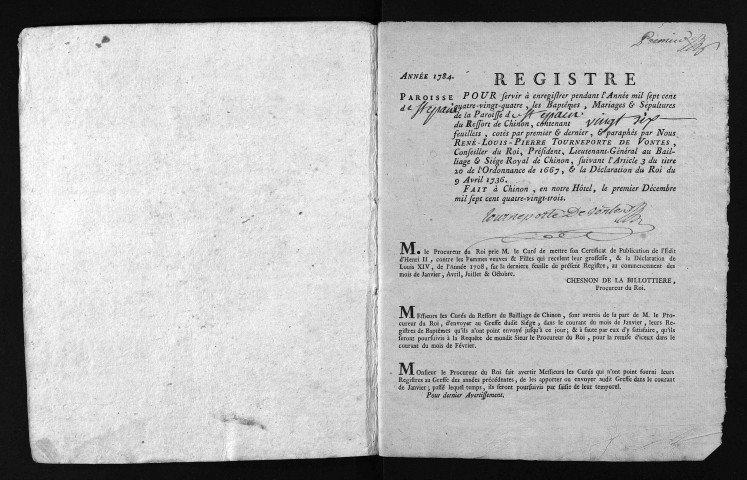 Premier
ANNÉE 1784.
REGISTRE
PAROISSE
de St epain
POUR servir à enregistrer pendant l'Année mil sept cent
quatre-vingt-quatre, les Baptêmes, Mariages & Sépultures
de la Paroisse de St epain
du Ressort de Chinon, contenant vingt six
feuillets, cotés par premier & dernier, & paraphés par Nous
RENÉ-LOUIS-PIERRE TOURNEPORTE DE VONTES,
Conseiller du Roi, Président, Lieutenant-Général au Bail-
liage & Siége Royal de Chinon, suivant l'Article 3 du titre
20 de l'Ordonnance de 1667, & la Déclaration du Roi du
9 Avril 1736.
FAIT à Chinon, en notre Hôtel, le premier Décembre
mil sept cent quatre-vingt-trois.
Tourneporte De Vontes
M. le Procureur du Roi prie M. le Curé de mettre son Certificat de Publication de l'Edit
d'Henri II, contre les Femmes veuves & Filles qui recelent leur grossesse, & la Déclaration de
Louis XIV, de l'Année 1708, sur la derniere feuille du présent Registre, au commencement des
mois de Janvier, Avril, Juillet & Octobre.
CHESNON DE LA BILLOTTIERE,
Procureur du Roi.
Messieurs les Curés du Ressort du Bailliage de Chinon, sont avertis de la part de M. le Pro-
cureur du Roi, d'envoyer au Greffe dudit Siége, dans le courant du mois de Janvier, leurs Re-
gistres de Baptêmes qu'ils n'ont point envoyé jusqu'à ce jour; & à faute par eux d'y satisfaire, qu'ils
seront poursuivis à la Requête de mondit Sieur le Procureur du Roi, pour la remise d'iceux dans le
courant du mois de Février.
Monsieur le Procureur du Roi fait avertir Messieurs les Curés qui n'ont point fourni leurs
Registres au Greffe des années précédentes, de les apporter ou envoyer audit Greffe dans le courant
de Janvier; passé lequel temps, ils seront poursuivis par saisie de leur temporel.
Pour dernier Avertissement.